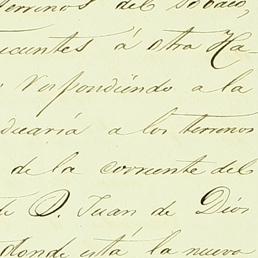 terrenos del sobaco,
ecientes á otra Ha-
respondiendo a la
dicaría a los terrenos
de la corriente del
de D. Juan de Dios
donde está la nueva